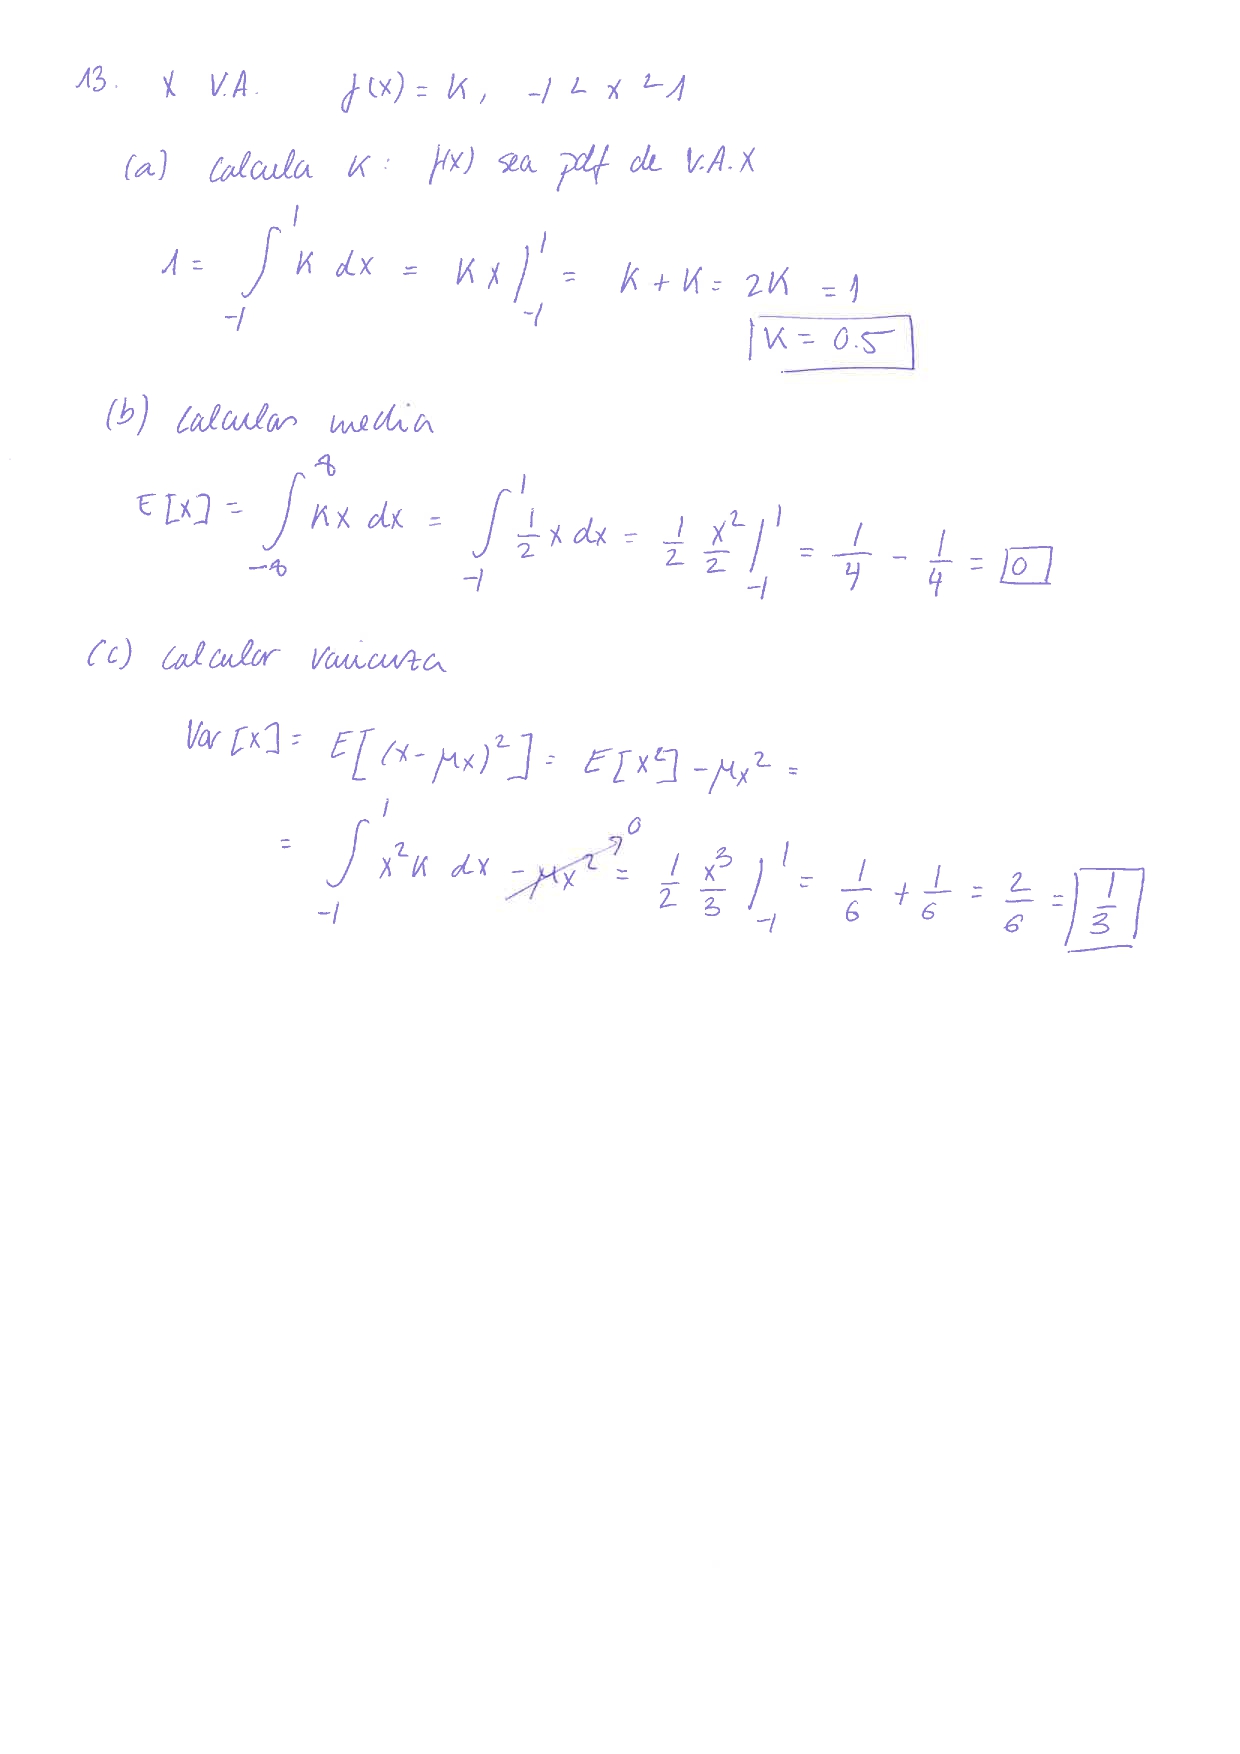 13. X V.A. f(x) = K, -1 < x < 1
(a) Calcula K: f(x) sea pdf de V.A. X
1 = ∫_{-1}^{1} K dx = Kx |_{-1}^{1} = K + K = 2K = 1
K = 0.5
(b) Calcular media
E[X] = ∫_{-∞}^{∞} Kx dx = ∫_{-1}^{1} 1/2 x dx = 1/2 x²/2 |_{-1}^{1} = 1/4 - 1/4 = 0
(c) Calcular varianza
Var[X] = E[(X-μx)²] = E[X²] - μx² =
= ∫_{-1}^{1} x² K dx - μx² → 0 = 1/2 x³/3 |_{-1}^{1} = 1/6 + 1/6 = 2/6 = 1/3